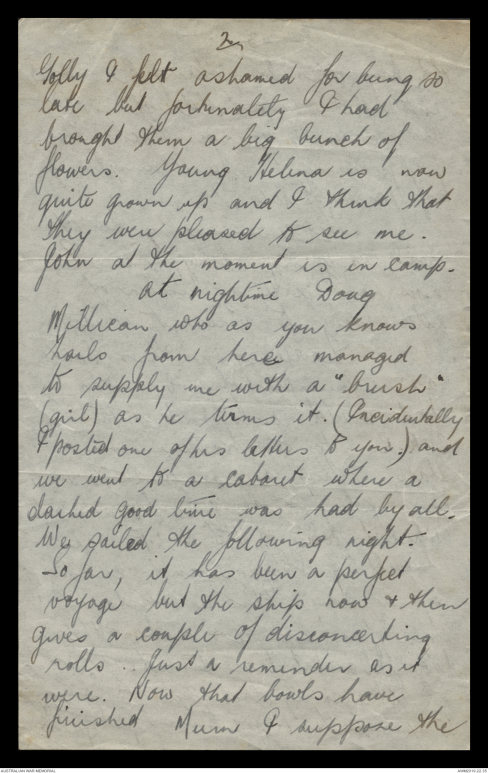 2
Golly I felt ashamed for being so
late but fortunately I had
brought them a big bunch of
flowers. Young Helena is now
quite grown up and I think that
they were pleased to see me.
John at the moment is in camp.
At nightime Doug
Millican who as you knows
hails from here managed
to supply me with a "brush"
(girl) as he terms it. (Incidentally
I posted one of his letters to you.) and
we went to a cabaret where a
dashed good time was had by all.
We sailed the following night.
So far, it has been a perfect
voyage but the ship now & then
gives a couple of disconcerting
rolls .. Just a reminder as it
were. Now that bowls have
finished Mum I suppose the
AUSTRALIAN WAR MEMORIAL